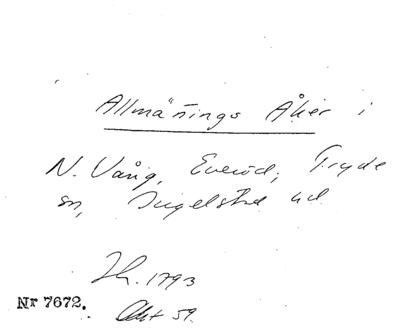 Allmännings Åker i
N. Vång, Everöd, Tryde
sn, Ingelsta hd
Sk. 1793
Nr 7672.
Akt 59.